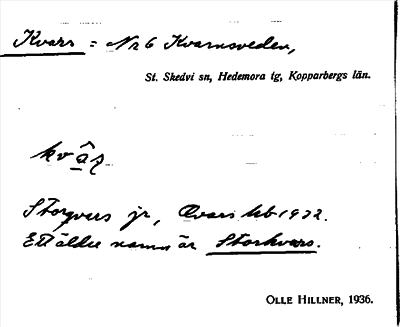 Kvars = Nr 6 Kvarnsveden,
St. Skedvi sn, Hedemora tg, Kopparbergs län.
Storqvers jr, Qvars hb 1932.
Ett äldre namn är Storkvars.
OLLE HILLNER, 1936.